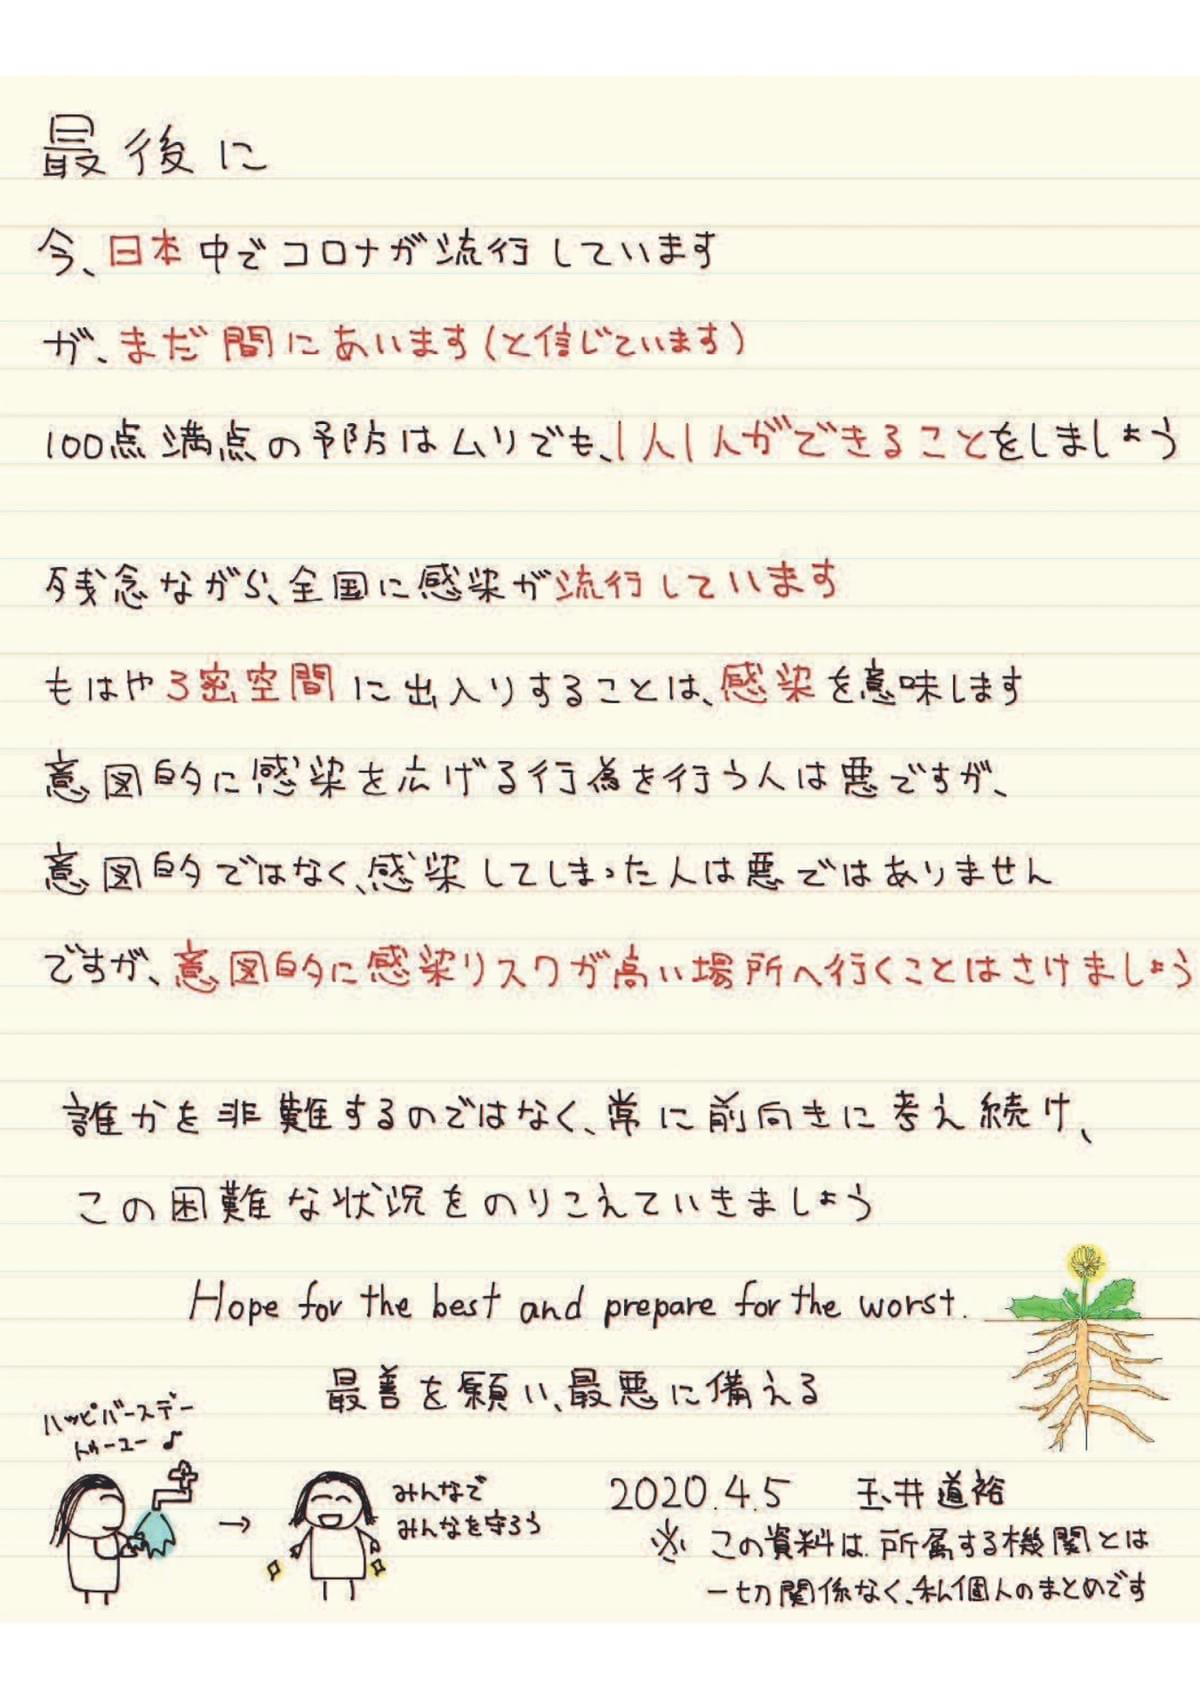 最後に
今、日本中でコロナが流行しています
が、まだ間にあいます(と信じています)
100点満点の予防はムリでも、1人1人ができることをしましょう
残念ながら、全国に感染が流行しています
もはや3密空間に出入りすることは、感染を意味します
意図的に感染を広げる行為を行う人は悪ですが、
意図的ではなく、感染してしまった人は悪ではありません
ですが、意図的に感染リスクが高い場所へ行くことはさけましょう
誰かを非難するのではなく、常に前向きに考え続け、
この困難な状況をのりこえていきましょう
Hope for the best and prepare for the worst.
最善を願い、最悪に備える
ハッピバースデー
トゥーユー♪
→
みんなで
みんなを守ろう
2020.4.5 玉井道裕
※ この資料は所属する機関とは
一切関係なく、私個人のまとめです